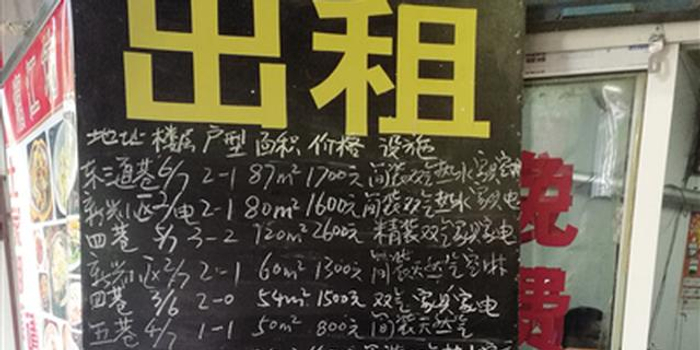 出租
地址 楼层 户型 面积 价格 设施
东三道巷 6/7 2-1 87m² 1700元 简装双气热水家具家电
东兴小区 2/电 2-1 80m² 1600元 简装双气热水家具家电
四巷 5/7 3-2 120m² 2600元 精装双气家具家电
东兴小区 2/7 2-1 60m² 1300元 简装天然气
四巷 3/6 2-0 54m² 1500元 双气 家具家电
五巷 4/7 1-1 50m² 800元 简装天然气
免费